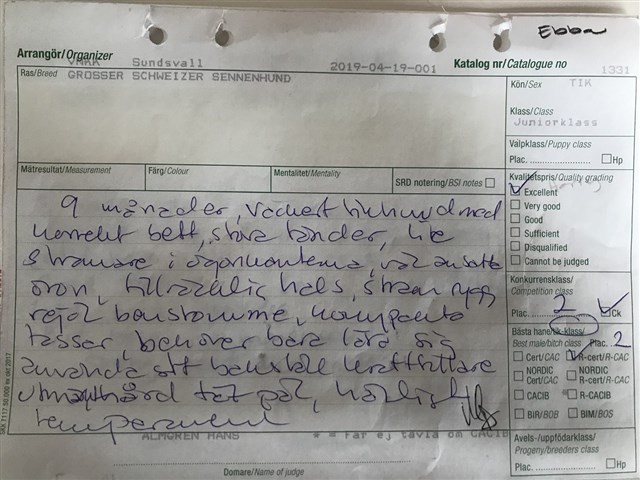 Ebba
Arrangör/Organizer
VNKK Sundsvall 2019-04-19-001 Katalog nr/Catalogue no 1331
Ras/Breed GROSSER SCHWEIZER SENNENHUND
Kön/Sex TIK
Klass/Class
Juniorklass
Valpklass/Puppy class
Plac. Hp
Mätresultat/Measurement Färg/Colour Mentalitet/Mentality SRD notering/BSI notes
Kvalitetspris/Quality grading
Excellent
Very good
Good
Sufficient
Disqualified
Cannot be judged
9 månader, vackert tikhuvud med
korrekt bett, stora tänder, lite
stramare i ögonkanterna, väl ansatta
öron, tillräcklig hals, stram rygg
rejäl benstomme, kompakta
tassar, behöver bara lära sig
använda sitt bakställ kraftfullare
utmärkt hård tät päl, härligt
temperament
Konkurrensklass/
Competition class
Plac. 2 Ck
Bästa hane/tik-klass/
Best male/bitch class Plac. 2
Cert/CAC R-cert/R-CAC
NORDIC Cert/CAC NORDIC R-cert/R-CAC
CACIB R-CACIB
BIR/BOB BIM/BOS
ALMGREN HANS * = Får ej tävla om CACIB
Domare/Name of judge
Avels-/uppfödarklass/
Progeny/breeders class
Plac. Hp